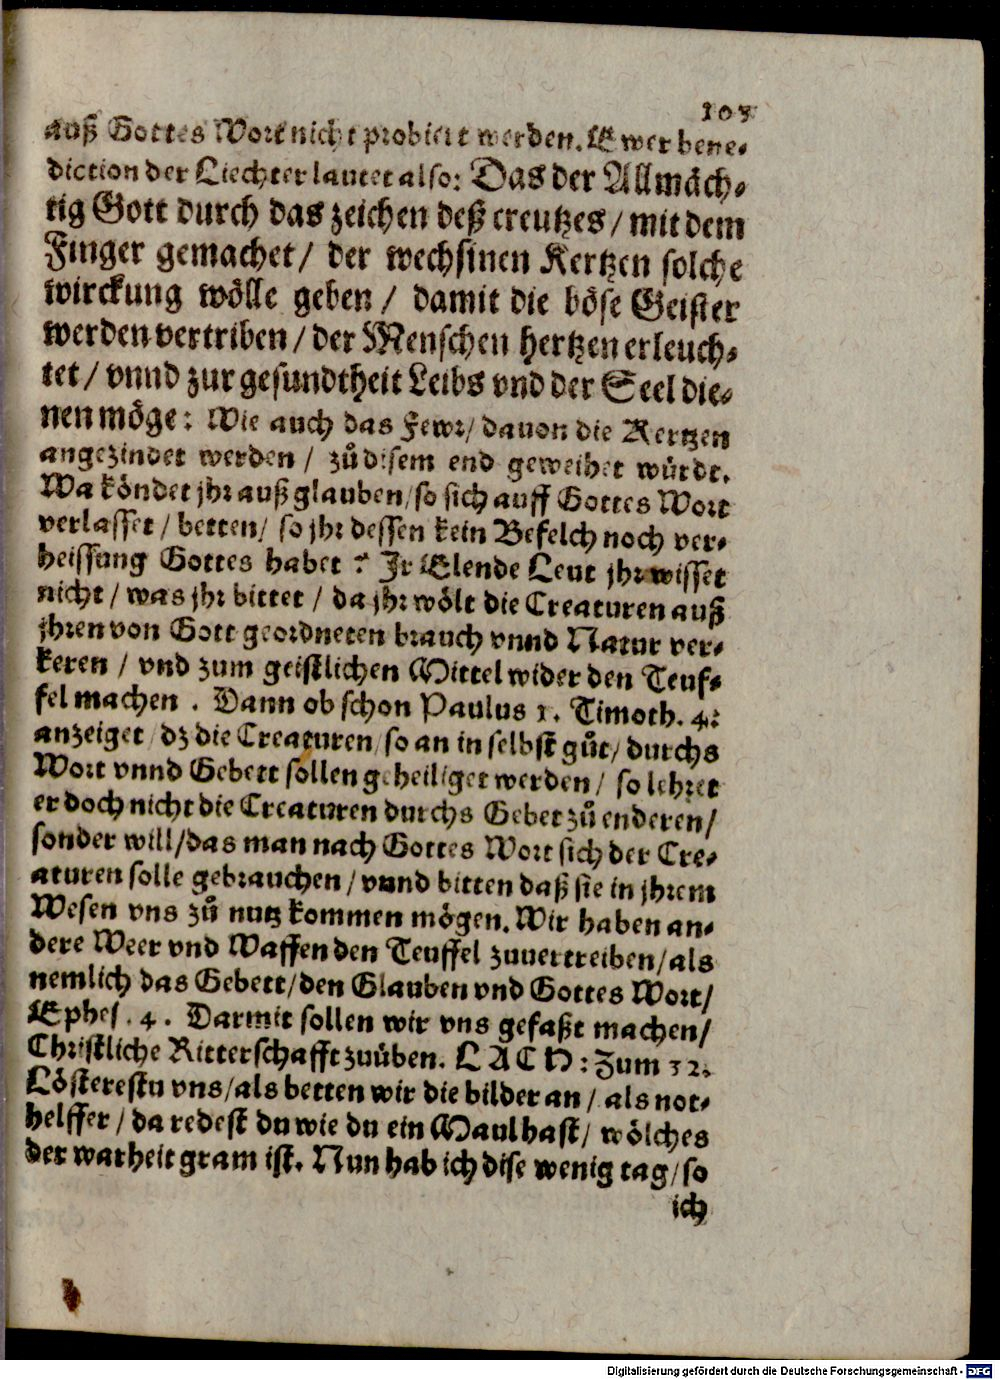 105
auß Gottes Wort nicht probiert werden. Ewer bene-
diction der Liechter lautet also: Das der Allmäch-
tig Gott durch das zeichen deß creutzes / mit dem
Finger gemachet / der wechsinen Kertzen solche
wirckung wölle geben / damit die böse Geister
werden vertriben / der Menschen hertzen erleuch-
tet / vnnd zur gesundtheit Leibs vnd der Seel die-
nen möge: Wie auch das Fewr / dauon die Kertzen
angezindet werden / zů disem end geweihet würdt.
Wa köndet jhr auß glauben / so sich auff Gottes Wort
verlasset / betten / so jhr dessen kein Befelch noch ver-
heissung Gottes habet ? Ir Elende Leut jhr wisset
nicht / was jhr bittet / da jhr wölt die Creaturen auß
jhren von Gott geordneten brauch vnnd Natur ver-
keren / vnd zum geistlichen Mittel wider den Teuf-
fel machen . Dann ob schon Paulus 1. Timoth. 4:
anzeiget / dz die Creaturen / so an in selbst gůt / durchs
Wort vnnd Gebett sollen geheiliget werden / so lehret
er doch nicht die Creaturen durchs Gebet zů enderen /
sonder will / das man nach Gottes Wort sich der Cre-
aturen solle gebrauchen / vnnd bitten daß sie in jhrem
Wesen vns zů nutz kommen mögen. Wir haben an-
dere Weer vnd Waffen den Teuffel zuuertreiben / als
nemlich das Gebett / den Glauben vnd Gottes Wort /
Ephes. 4 . Darmit sollen wir vns gefaßt machen /
Christliche Ritterschafft zuüben. LACH: Zum 32.
Lösterestu vns / als betten wir die bilder an / als not-
helffer / da redest du wie du ein Maul hast / wölches
der warheit gram ist. Nun hab ich dise wenig tag / so
ich
Digitalisierung gefördert durch die Deutsche Forschungsgemeinschaft - DFG